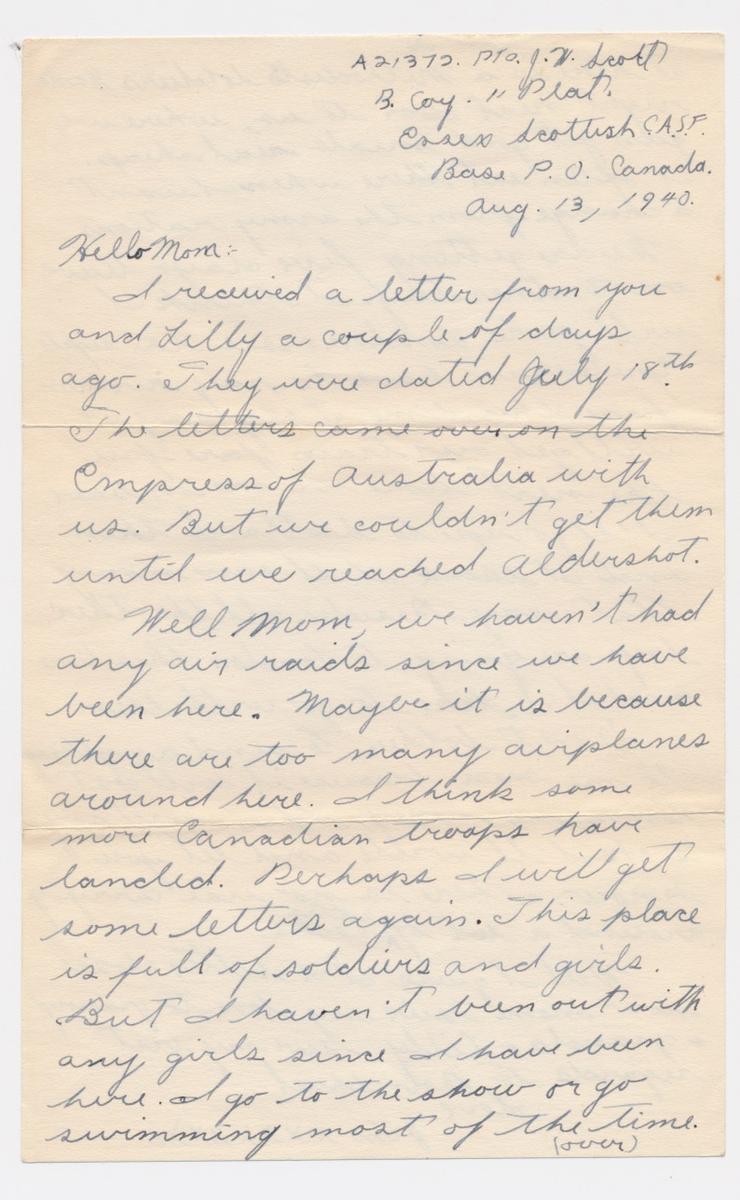 A21372. Pte. J. W. Scott
B. Coy. 11 Plat.
Essex Scottish C.A.S.F.
Base P. O. Canada.
Aug. 13, 1940.
Hello Mom:-
I received a letter from you
and Lilly a couple of days
ago. They were dated July 18th.
The letters came over on the
Empress of Australia with
us. But we couldn't get them
until we reached Aldershot.
Well Mom, we haven't had
any air raids since we have
been here. Maybe it is because
there are too many airplanes
around here. I think some
more Canadian troops have
landed. Perhaps I will get
some letters again. This place
is full of soldiers and girls.
But I haven't been out with
any girls since I have been
here. I go to the show or go
swimming most of the time.
(over)